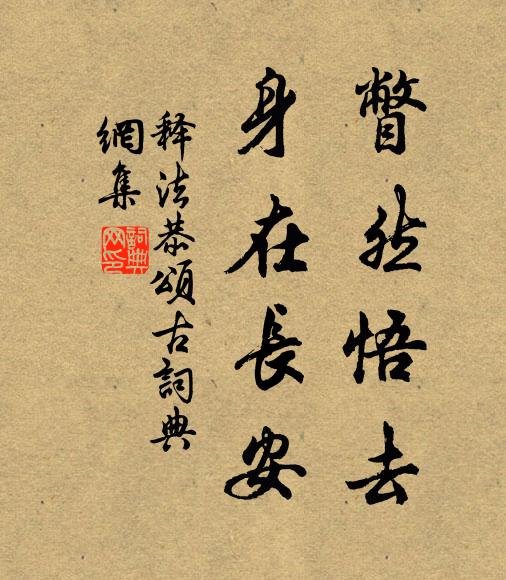 瞥然悟去
身在長安
释法恭頌古詞典
網集
詞典网印